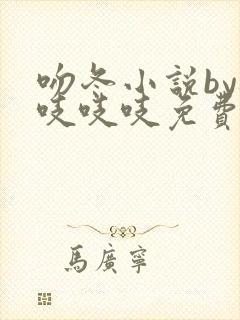 吻冬小說by
吱吱吱免費
馬廣寧